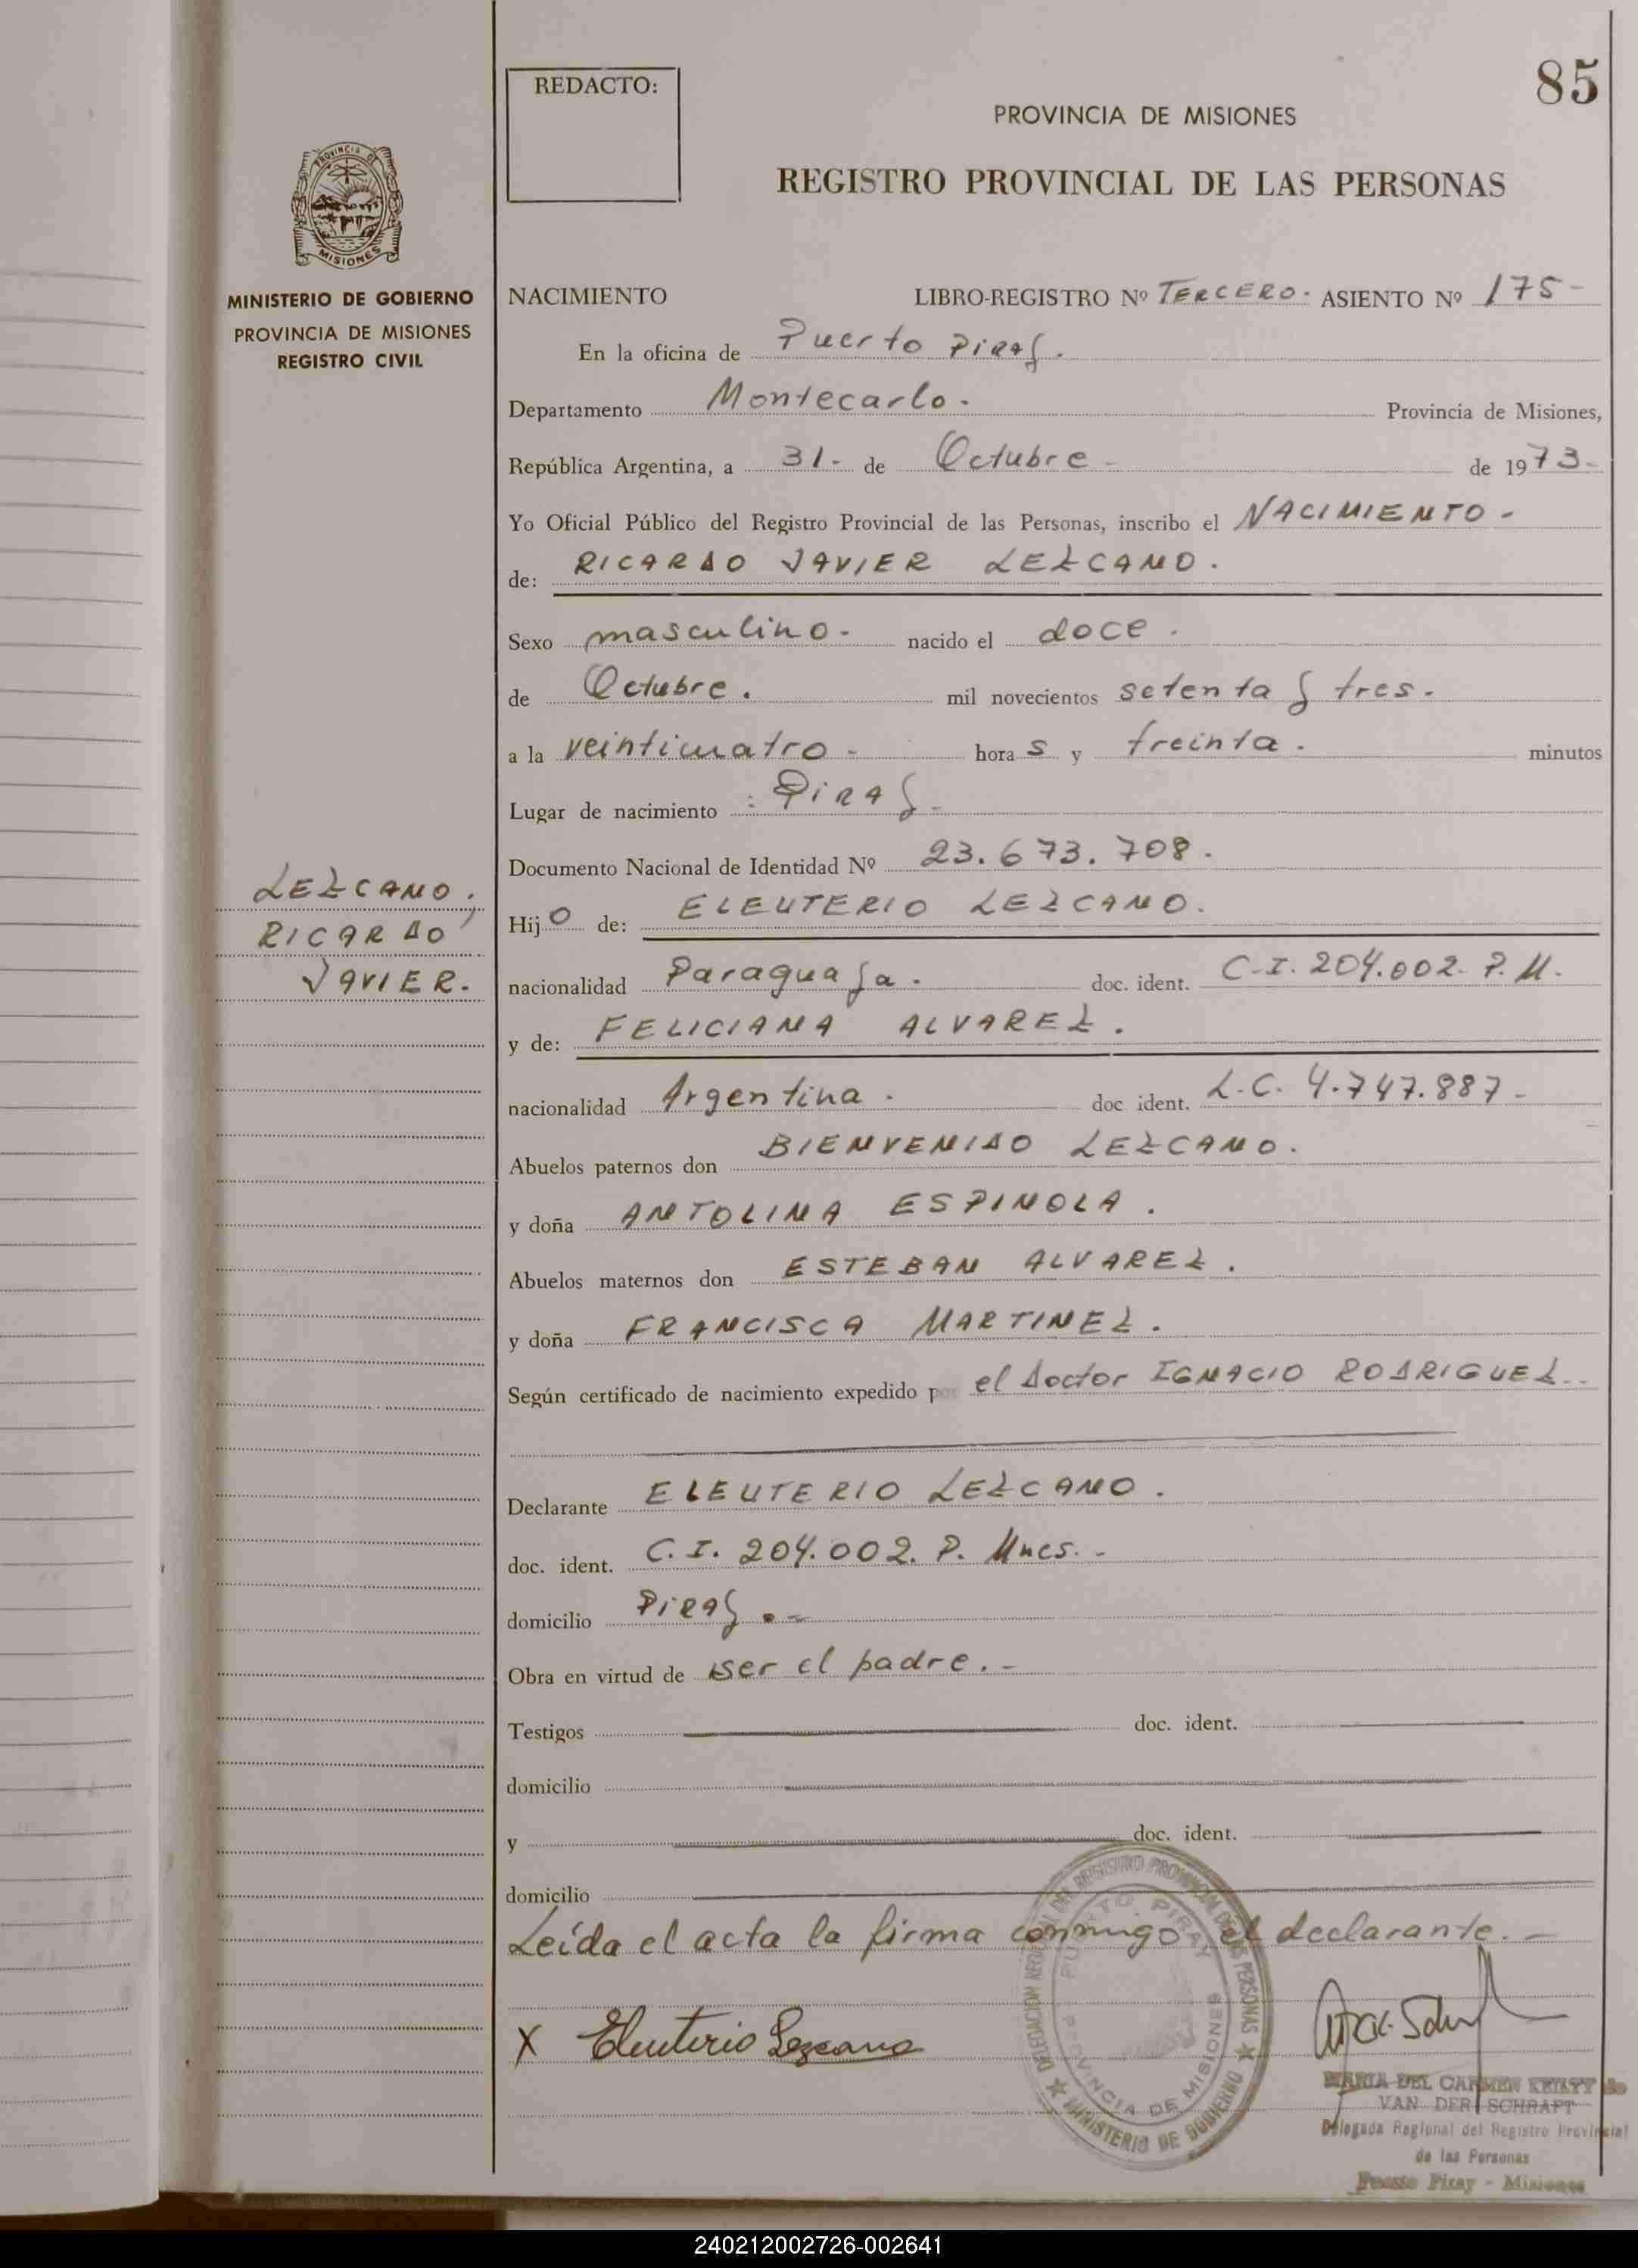 REDACTO:
85
PROVINCIA DE MISIONES
REGISTRO PROVINCIAL DE LAS PERSONAS
PROVINCIA DE
MISIONES
MINISTERIO DE GOBIERNO
PROVINCIA DE MISIONES
REGISTRO CIVIL
NACIMIENTO LIBRO-REGISTRO Nº TERCERO. ASIENTO Nº 175-
En la oficina de Puerto Piray.
Departamento Montecarlo. Provincia de Misiones,
República Argentina, a 31- de Octubre- de 1973-
Yo Oficial Público del Registro Provincial de las Personas, inscribo el NACIMIENTO-
de: RICARDO JAVIER LEZCANO.
Sexo masculino- nacido el doce.
de Octubre. mil novecientos setenta y tres.
a la veinticuatro- horas y treinta. minutos
Lugar de nacimiento : Piray-
Documento Nacional de Identidad Nº 23.673.708.
LEZCANO,
RICARDO
JAVIER.
Hijo de: ELEUTERIO LEZCANO.
nacionalidad Paraguaya. doc. ident. C.I. 204.002. P.M.
y de: FELICIANA ALVAREZ.
nacionalidad Argentina. doc ident. L.C. 4.747.887-
Abuelos paternos don BIENVENIDO LEZCANO.
y doña ANTOLINA ESPINOLA.
Abuelos maternos don ESTEBAN ALVAREZ.
y doña FRANCISCA MARTINEZ.
Según certificado de nacimiento expedido por el Doctor IGNACIO RODRIGUEZ..
Declarante ELEUTERIO LEZCANO.
doc. ident. C.I. 204.002. P. Mnes.-
domicilio Piray.-
Obra en virtud de ser el padre.-
Testigos doc. ident.
domicilio
y doc. ident.
domicilio
Leída el acta la firma conmigo el declarante.-
X Eleuterio Lezcano
DELEGACION REGIONAL DEL REGISTRO PROVINCIAL DE LAS PERSONAS
MINISTERIO DE GOBIERNO
PUERTO PIRAY
PROVINCIA DE MISIONES
MARIA DEL CARMEN KEILTY de
VAN DER SCHRAFT
Delegada Regional del Registro Provincial
de las Personas
Puerto Piray - Misiones
240212002726-002641